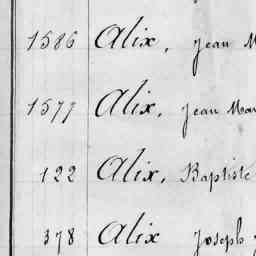 1586 Alix, Jean M
1577 Alix, Jean Mar
122 Alix, Baptiste
378 Alix Joseph